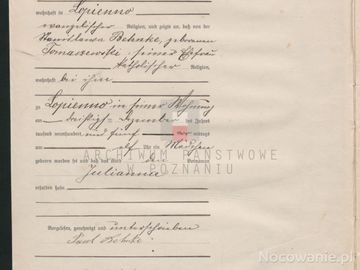 wohnhaft in Lopienno
evangelischer Religion, und zeigte an, daß von der
Stanislawa Behnke, geborenen
Tomaszewski, seiner Ehefrau
katholischer Religion,
wohnhaft bei ihm
zu Lopienno in seiner Wohnung
am Dezember des Jahres
tausend neunhundert und fünf mittags
um Uhr ein Mädchen
geboren worden ist und daß das Kind den Vornamen
Julianna
erhalten habe
Vorgelesen, genehmigt und unterschrieben
Behnke
ARCHIWUM PAŃSTWOWE
W POZNANIU
Nocowanie.pl